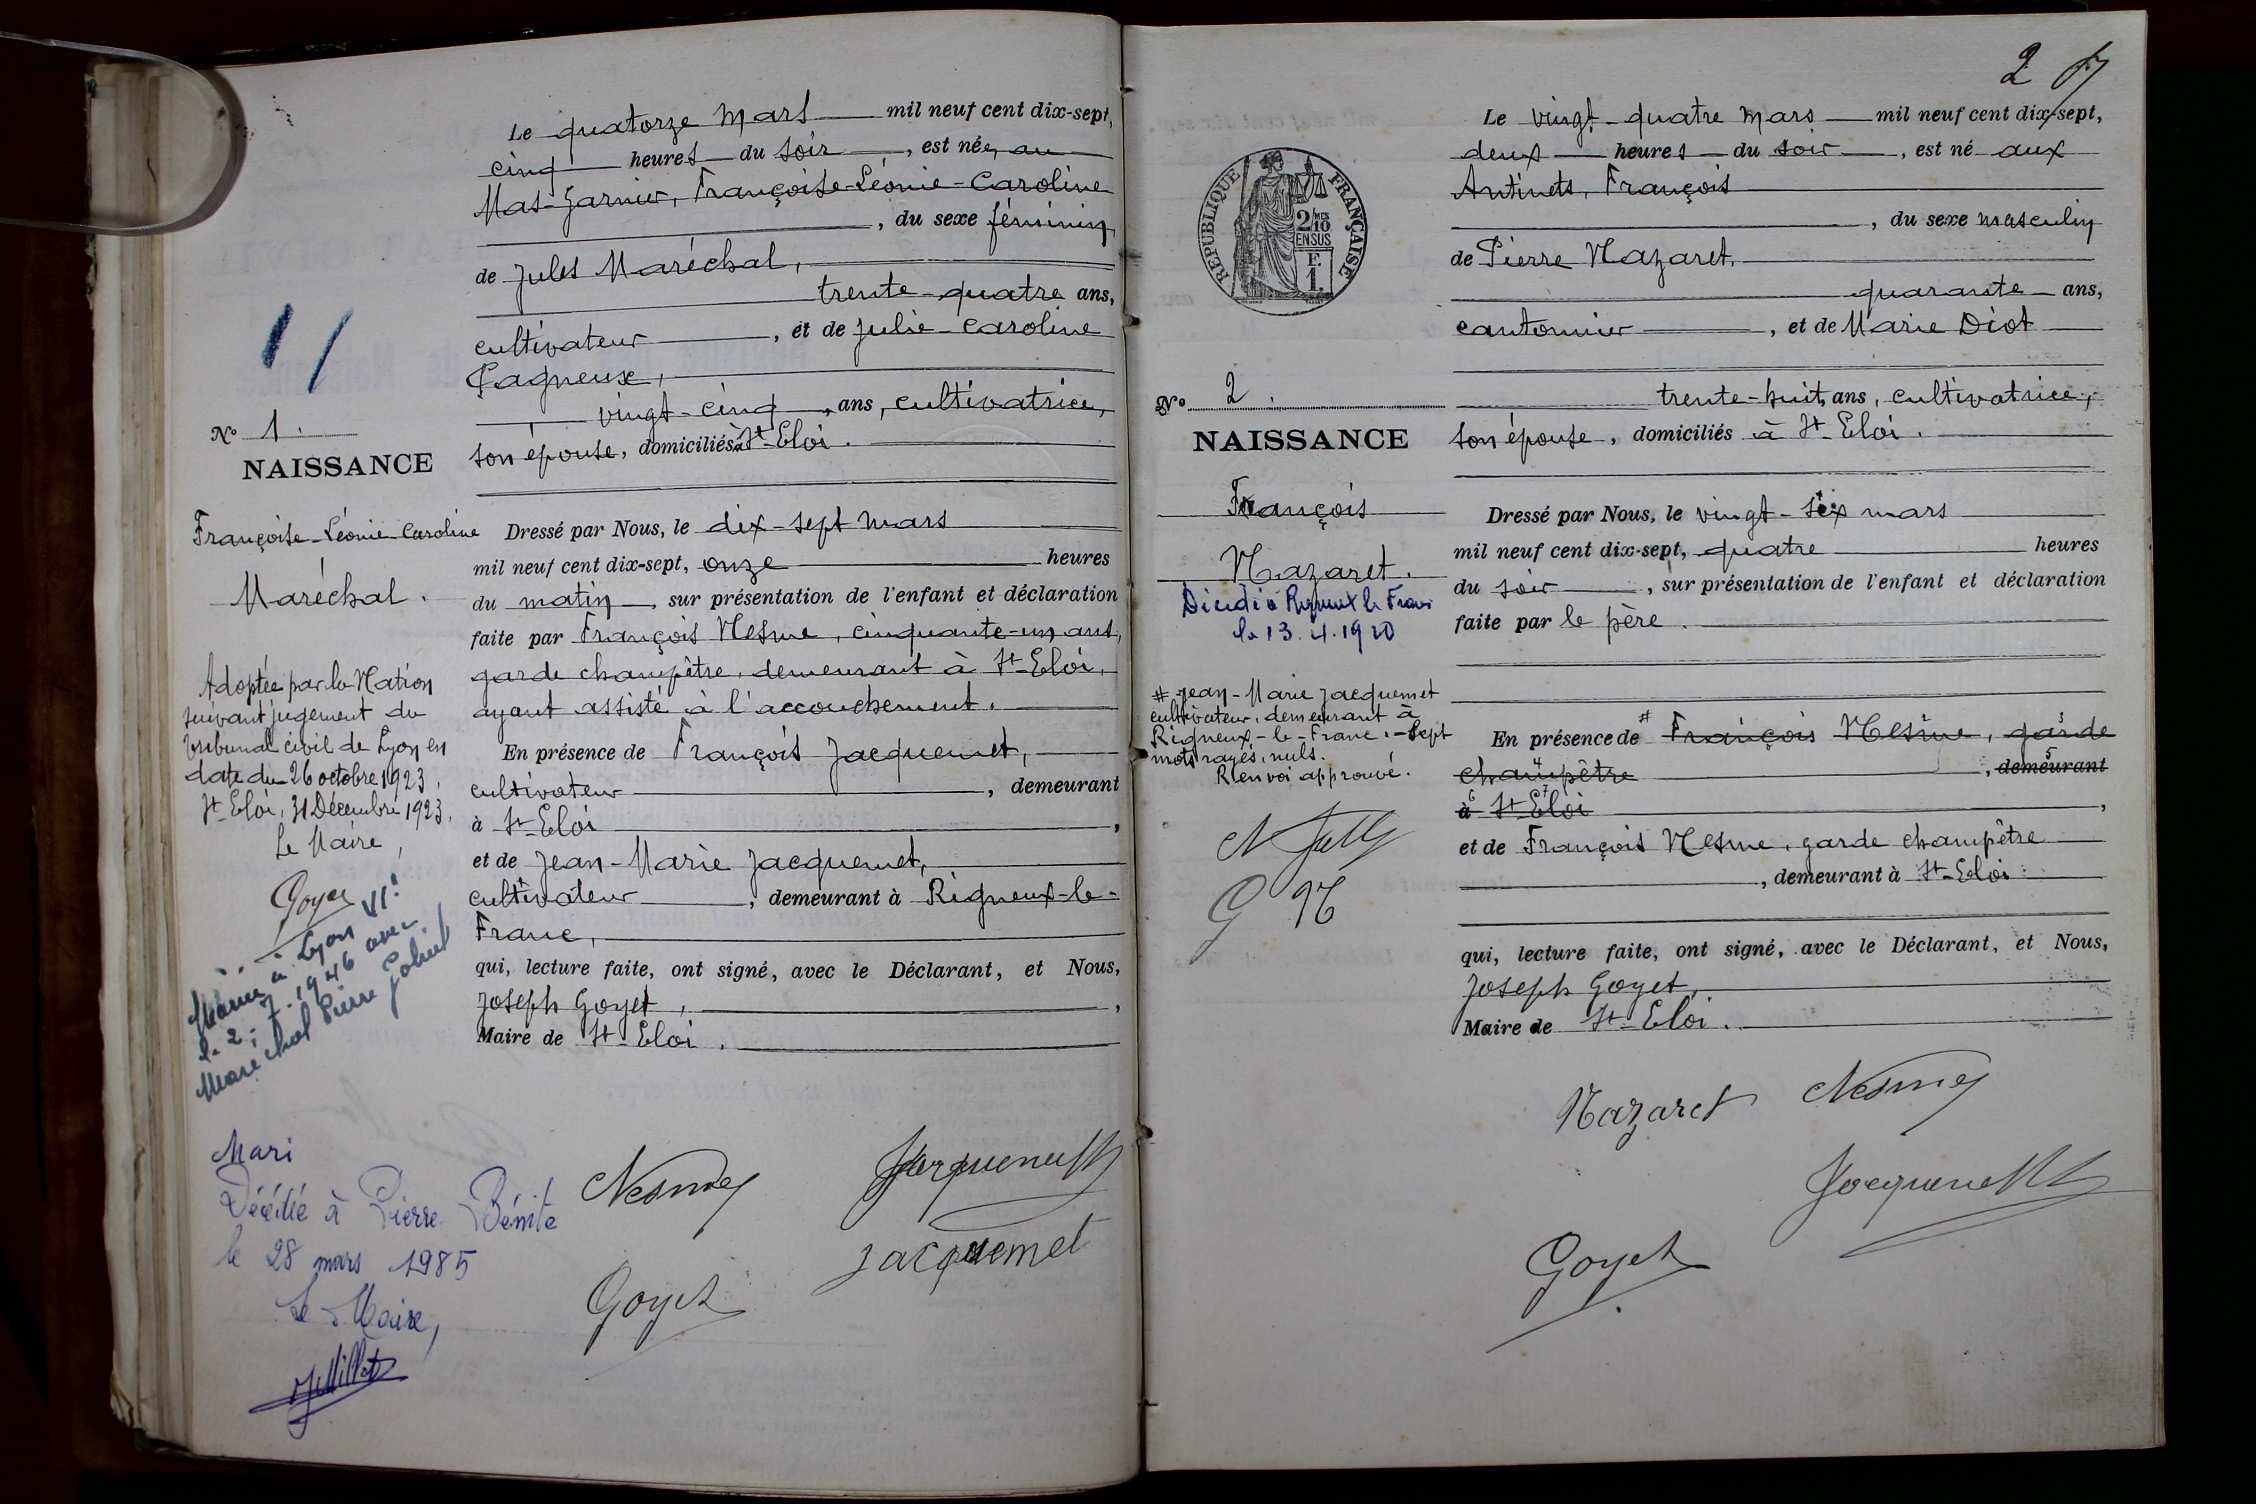 Le quatorze Mars mil neuf cent dix-sept,
cinq heures du soir, est née, au
Mas-Garnier, Françoise-Léonie-Caroline
, du sexe féminin
de Jules Maréchal,
trente-quatre ans,
cultivateur, et de Julie-Caroline
vingt-cinq, ans, cultivatrice,
son épouse, domiciliés à St-Eloi.
11
N° 1.
NAISSANCE
Françoise-Léonie-Caroline
Maréchal.
Dressé par Nous, le dix-sept mars
mil neuf cent dix-sept, onze heures
du matin, sur présentation de l'enfant et déclaration
faite par François Nesme, cinquante-un ans,
garde champêtre, demeurant à St-Eloi,
ayant assisté à l'accouchement.
En présence de François Jacquemet,
cultivateur, demeurant
à St-Eloi,
et de Jean-Marie Jacquemet,
cultivateur, demeurant à Rigneux-le-
Franc,
qui, lecture faite, ont signé, avec le Déclarant, et Nous,
Joseph Goyet,
Maire de St-Eloi.
Adoptée par la Nation
suivant jugement du
tribunal civil de Lyon en
date du 26 octobre 1923.
St-Eloi, 31 Décembre 1923.
Le Maire,
Goyet
Mariée à Lyon VI!
le 2.7.1946 avec
Maréchal Pierre
Mari
Décédée à Pierre-Bénite
le 28 mars 1985
Le Maire,
Millet
Nesme
Jacquemet
Jacquemet
Goyet
2
Le vingt-quatre Mars mil neuf cent dix-sept,
deux heures du soir, est né aux
Antinets, François
, du sexe masculin
de Pierre Nazaret,
quarante ans,
cantonnier, et de Marie Diot
trente-huit ans, cultivatrice,
son épouse, domiciliés à St-Eloi.
RÉPUBLIQUE FRANÇAISE
2/10 MES
EN SUS
F.
1.
N° 2.
NAISSANCE
François
Nazaret.
Décédé à Rigneux le Franc
le 13.4.1920
Dressé par Nous, le vingt-six mars
mil neuf cent dix-sept, quatre heures
du soir, sur présentation de l'enfant et déclaration
faite par le père.
En présence de # François Nesme, garde
champêtre, demeurant
à St-Eloi,
et de François Nesme, garde champêtre
, demeurant à St-Eloi
qui, lecture faite, ont signé, avec le Déclarant, et Nous,
Joseph Goyet,
Maire de St-Eloi.
# Jean-Marie Jacquemet
cultivateur, demeurant à
Rigneux-le-Franc.-Sept
mots rayés, nuls.
Renvoi approuvé.
G N
Nazaret
Nesme
Jacquemet
Goyet